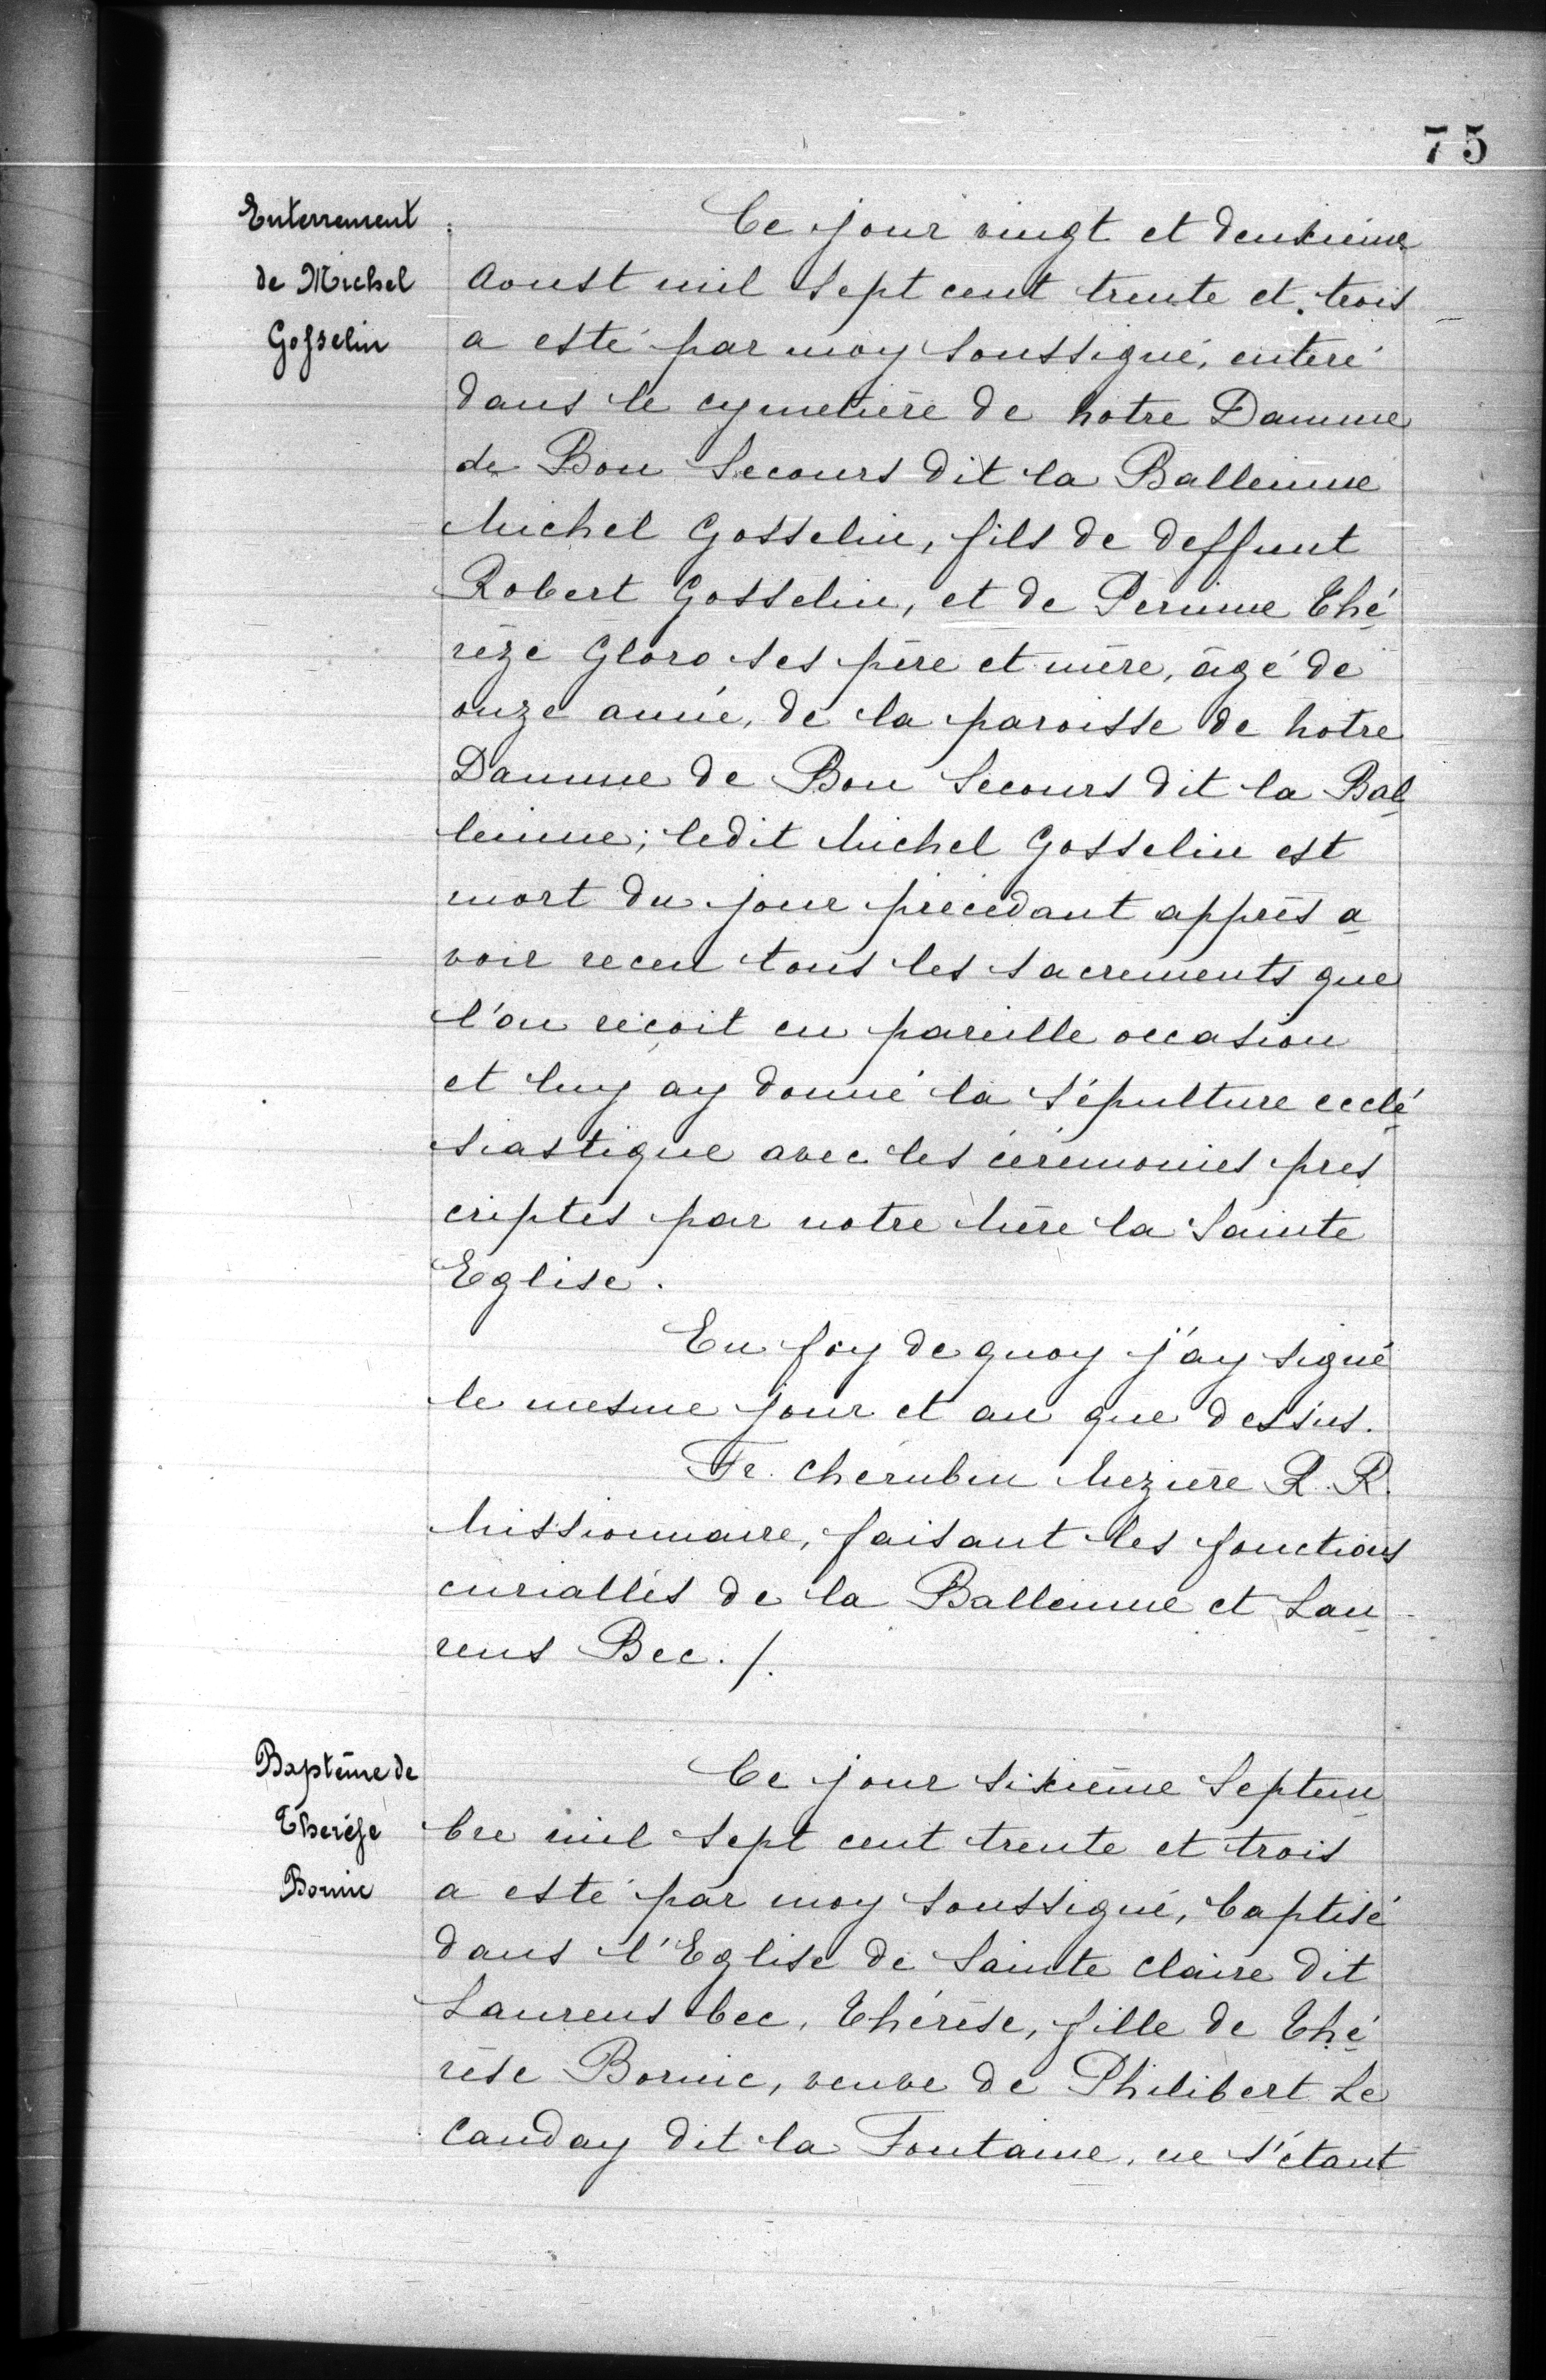 75
Enterrement
de Michel
Gosselin
Ce jour vingt et deuxieme
Aoust mil sept cent trente et trois
a esté par moy soussigné, enteré
dans le cymetière de notre Damme
de Bon Secours dit la Balleinne
Michel Gosselin, fils de deffunt
Robert Gosselin, et de Perinne Thé
rèze Gloro ses père et mère, âgé de
onze année, de la paroisse de notre
Damme de Bon Secours dit la Bal
leinne; ledit Michel Gosselin est
mort du jour précédant apprès a
voir receu tous les sacrements que
l'on reçoit en pareille occasion
et luy ay donné la sépulture ecclé
siastique avec les cérémonies pres
criptes par notre Mère la Sainte
Eglise.
En foy de quoy j'ay signé
le mesme jour et an que dessus.
Fr. Cherubin Mezière R. R.
Missionnaire, faisant les fonctions
curialles de la Balleinne et Lau
rens Bec. /.
Baptême de
Therése
Bornic
Ce jour sixième Septem
bre mil sept cent trente et trois
a esté par moy soussigné, baptisé
dans l'Eglise de Sainte Claire dit
Laurens bec, Thérèse, fille de Thé
rèse Bornic, veuve de Philibert Le
Canday dit la Fontaine, ne s'étant